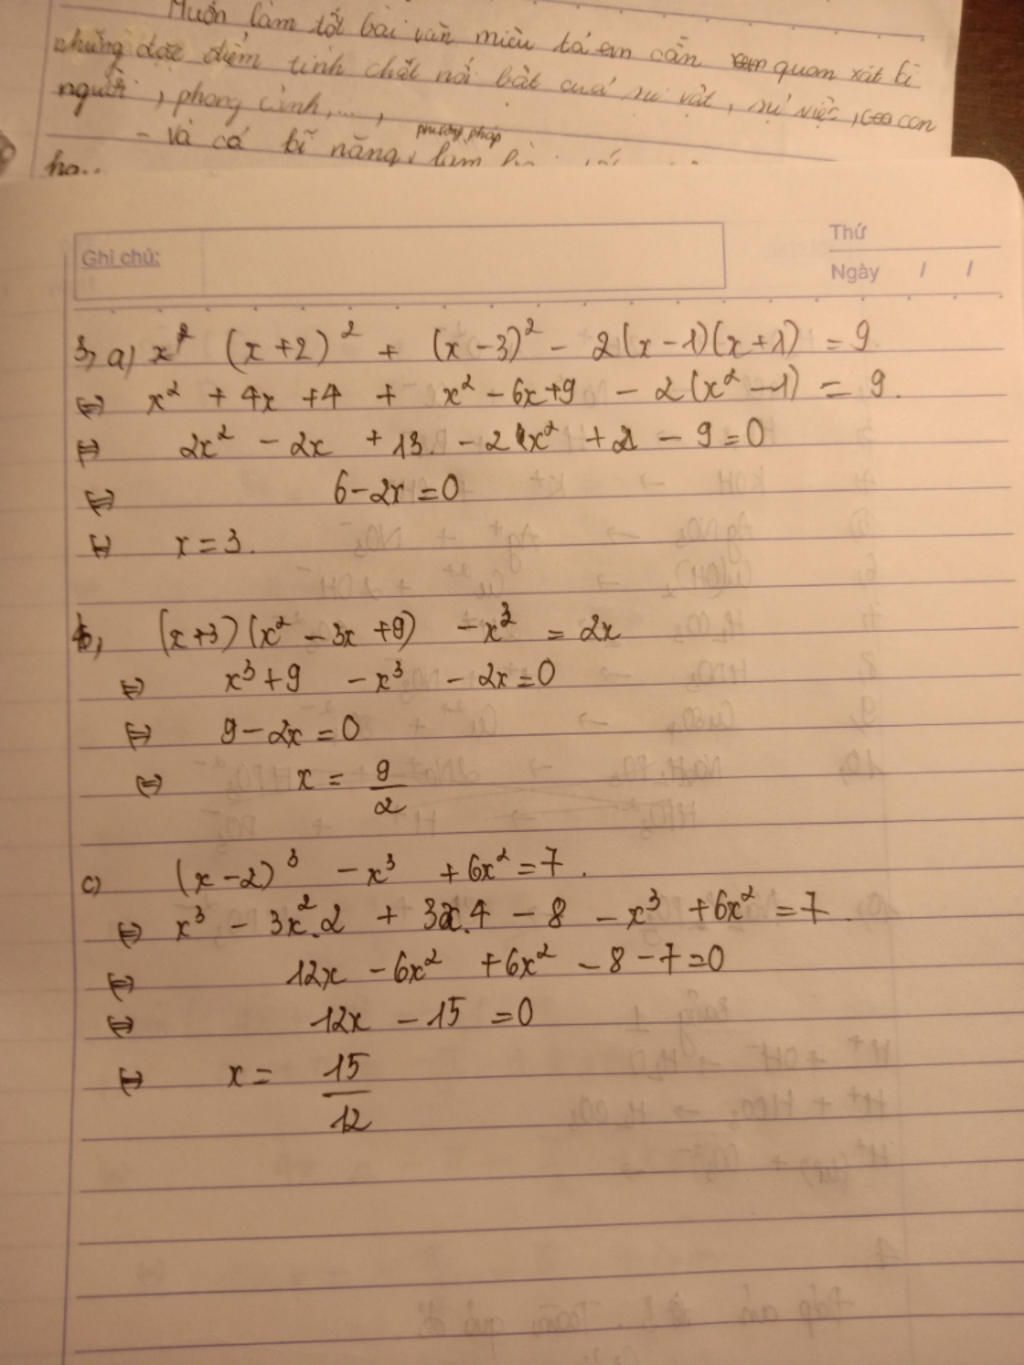 Muốn làm tốt bài văn miêu tả em cần quan xát kĩ
những đặc điểm tính chất nổi bật cuả sự vật, sự việc, con
người, phong cảnh,...,
phương pháp
- và có kĩ năng, làm
Ghi chú:
Thứ
Ngày / /
3, a) x² (x+2)² + (x-3)² - 2(x-1)(x+1) = 9
⇔ x² + 4x + 4 + x² - 6x + 9 - 2(x² - 1) = 9.
⇔ 2x² - 2x + 13 - 2x² + 2 - 9 = 0
⇔ 6 - 2x = 0
⇔ x = 3.
b, (x+3)(x² - 3x + 9) - x³ = 2x
⇔ x³ + 9 - x³ - 2x = 0
⇔ 9 - 2x = 0
⇔ x = 9/2
c) (x-2)³ - x³ + 6x² = 7.
⇔ x³ - 3x².2 + 3x.4 - 8 - x³ + 6x² = 7.
⇔ 12x - 6x² + 6x² - 8 - 7 = 0
⇔ 12x - 15 = 0
⇔ x = 15/12